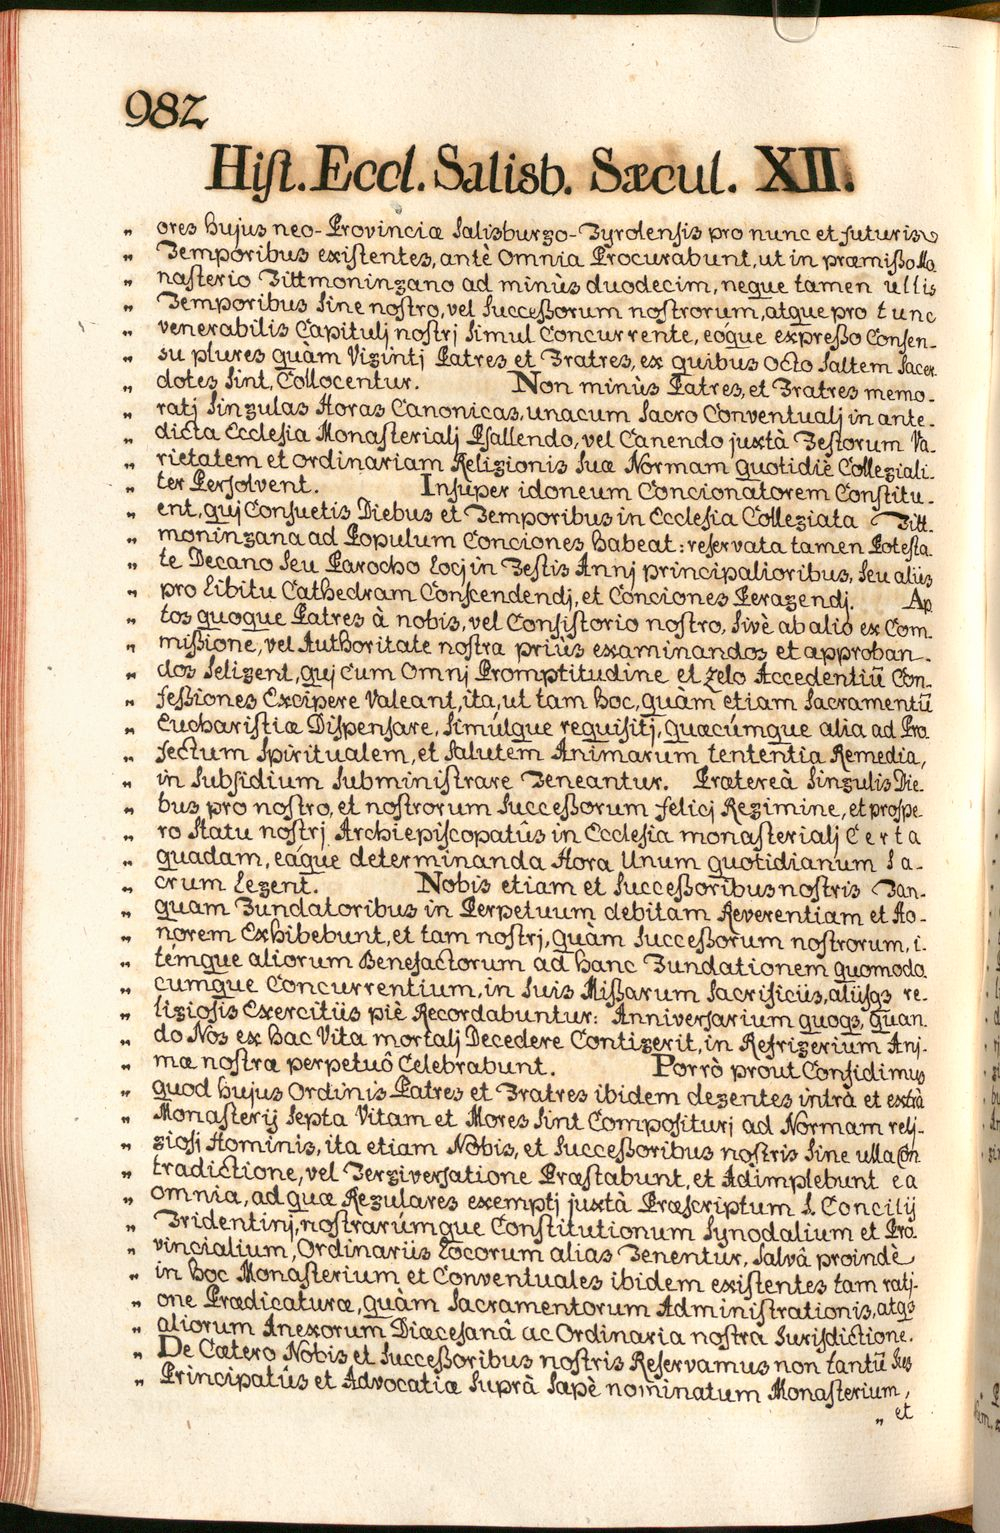 982
Hist. Eccl. Salisb. Sæcul. XII.
„ ores hujus neo-Provinciæ Salisburgo-Tyrolensis pro nunc et futuris
„ Temporibus existentes, antè omnia Procurabunt, ut in præmisso Mo.
„ nasterio Tittmoningano ad minùs duodecim, neque tamen ullis
„ Temporibus sine nostro, vel Successorum nostrorum, atque pro tunc
„ venerabilis Capitulj nostrj simul Concurrente, eóque expresso Consen-
„ su plures quàm Vigintj Patres et Fratres, ex quibus octo saltem Sacer.
„ dotes sint, Collocentur. Non minùs Patres, et Fratres memo-
„ ratj singulas Horas Canonicas, unacum Sacro Conventualj in ante.
„ dicta Ecclesia Monasterialj Psallendo, vel Canendo juxtà Festorum Va.
„ rietatem et ordinariam Religionis suæ Normam quotidiè Collegiali.
„ ter Persolvent. Insuper idoneum Concionatorem Constitu-
„ ent, quj Consuetis Diebus et Temporibus in Ecclesia Collegiata Titt.
„ moningana ad Populum Conciones habeat: reservata tamen Potesta.
„ te Decano seu Parocho Locj in Festis Annj principalioribus, seu aliàs
„ pro Libitu Cathedram Conscendendj, et Conciones Peragendj. Ap
„ tos quoque Patres à nobis, vel Consistorio nostro, sivè ab alio ex Com.
„ missione, vel Authoritate nostra priùs examinandos et approban-
„ dos Seligent, quj cum Omnj Promptitudine et Zelo Accedentiũ Con-
„ fessiones Excipere Valeant, ita, ut tam hoc, quàm etiam Sacramentũ
„ Eucharistiæ Dispensare, simúlque requisitj, quæcúmque alia ad Pro.
„ fectum Spiritualem, et Salutem Animarum tententia Remedia,
„ in Subsidium Subministrare Teneantur. Prætereà singulis Die-
„ bus pro nostro, et nostrorum Successorum felicj Regimine, et prospe-
„ ro Statu nostrj Archiepiscopatûs in Ecclesia monasterialj Certa
„ quadam, eáque determinanda Hora Unum quotidianum Sa-
„ crum Legent. Nobis etiam et Successoribus nostris Tan-
„ quam Fundatoribus in Perpetuum debitam Reverentiam et Ho-
„ norem Exhibebunt, et tam nostrj, quàm Successorum nostrorum, i.
„ témque aliorum Benefactorum ad hanc Fundationem quomodo
„ cumque Concurrentium, in suis Missarum Sacrificiis, aliisqs re-
„ ligiosis Exercitiis piè Recordabuntur: Anniversarium quoqs, quan.
„ do Nos ex hac Vita mortalj Decedere Contigerit, in Refrigerium Anj-
„ mæ nostræ perpetuô Celebrabunt. Porrò prout Confidimus
„ quod hujus Ordinis Patres et Fratres ibidem degentes intrà et extrà
„ Monasterij Septa Vitam et Mores sint Compositurj ad Normam relj-
„ giosj Hominis, ita etiam Nobis, et Successoribus nostris sine ulla Con
„ tradictione, vel Tergiversatione Præstabunt, et Adimplebunt ea
„ omnia, ad quæ Regulares exemptj juxtà Præscriptum S. Concilij
„ Tridentinj, nostrarúmque Constitutionum Synodalium et Pro.
„ vincialium, Ordinariis Locorum alias Tenentur, Salvâ proindè
„ in hoc Monasterium et Conventuales ibidem existentes tam ratj-
„ one Prædicaturæ, quàm Sacramentorum Administrationis, atqs
„ aliorum Anexorum Diæcesanâ ac Ordinaria nostra Jurisdictione.
„ De Cætero Nobis et Successoribus nostris Reservamus non tantũ Jus
„ Principatûs et Advocatiæ Suprà Sæpè nominatum Monasterium,
„ et